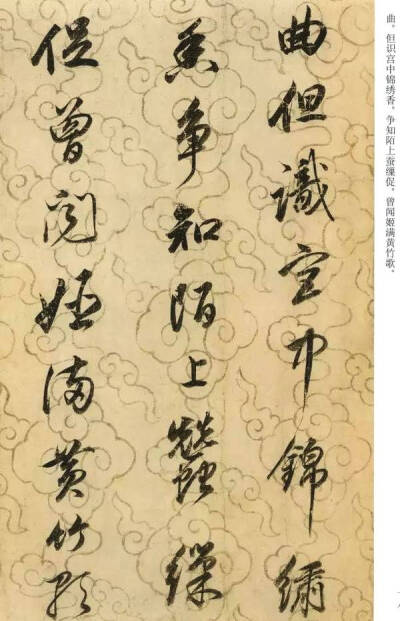 曲但識宮中錦繡
香爭知陌上蠶繅
促曾聞姬滿黃竹歌
曲。但识宫中锦绣香。争知陌上蚕缫促。曾闻姬满黄竹歌。